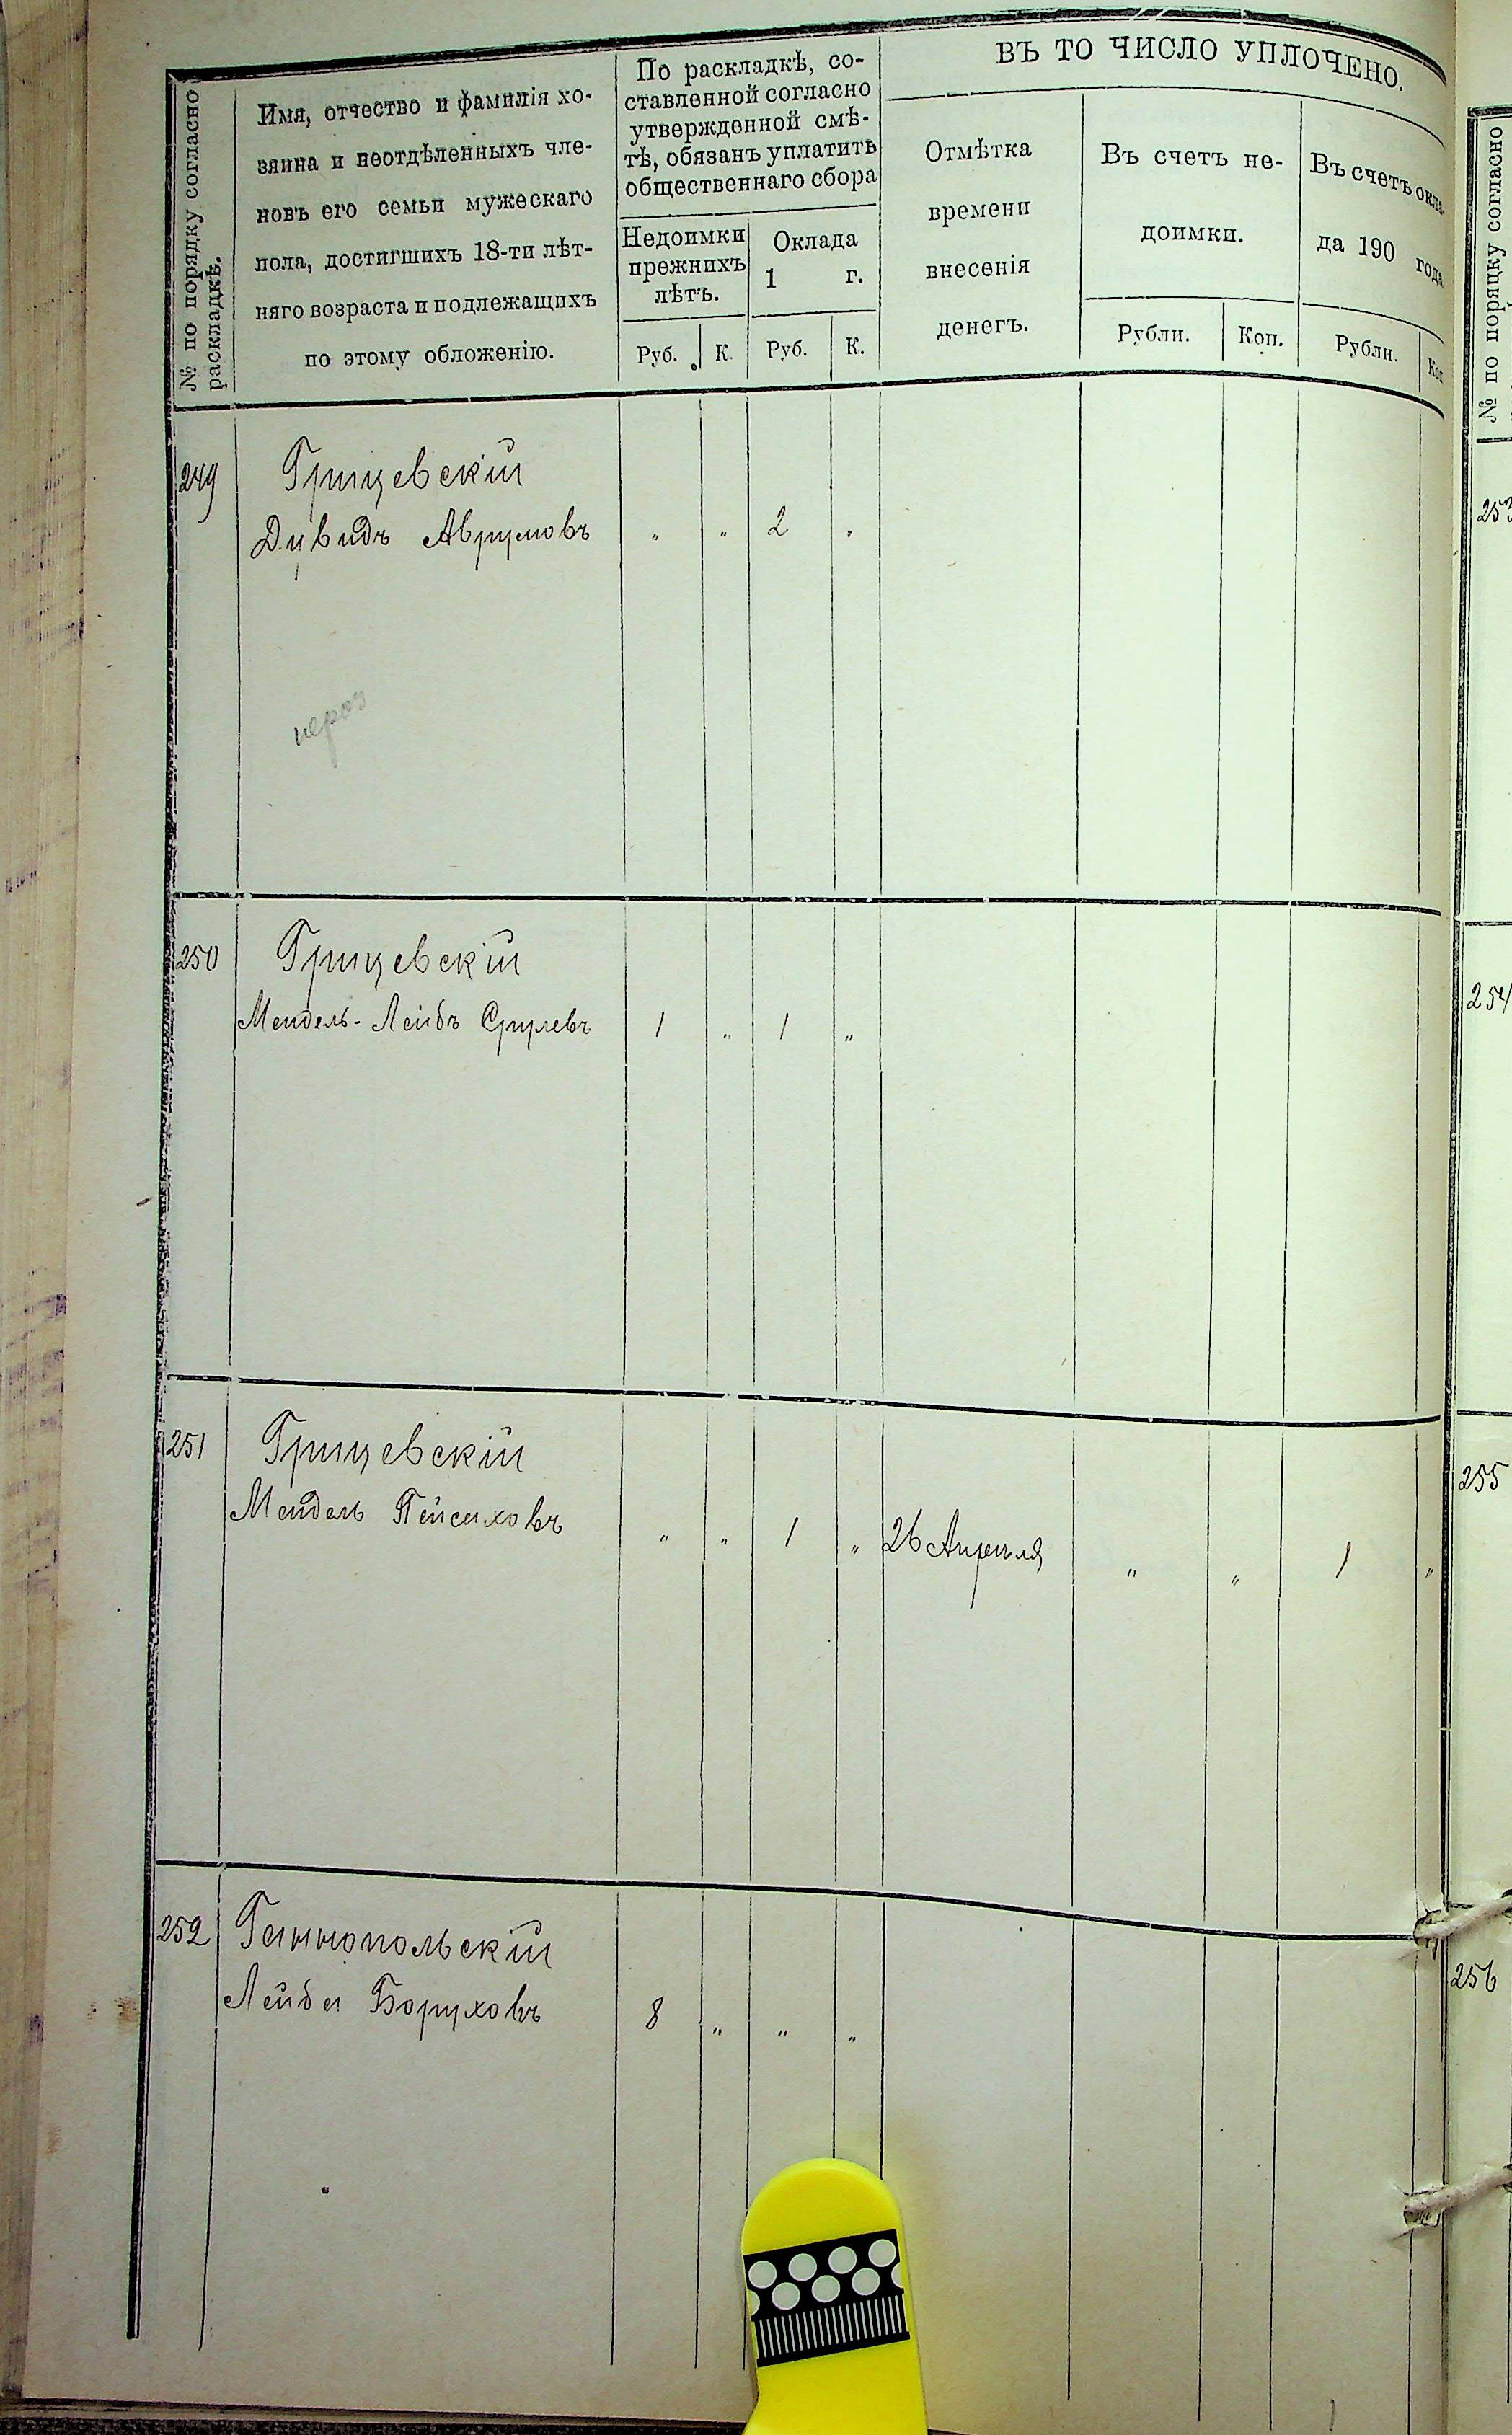 № по порядку согласно
раскладкѣ.
Имя, отчество и фамилія хо-
зяина и неотдѣленныхъ чле-
новъ его семьи мужескаго
пола, достигшихъ 18-ти лѣт-
няго возраста и подлежащихъ
по этому обложенію.
По раскладкѣ, со-
ставленной согласно
утвержденной смѣ-
тѣ, обязанъ уплатить
общественнаго сбора
Недоимки
прежнихъ
лѣтъ.
Руб. К.
Оклада
1 г.
Руб. К.
ВЪ ТО ЧИСЛО УПЛОЧЕНО.
Отмѣтка
времени
внесенія
денегъ.
Въ счетъ не-
доимки.
Рубли. Коп.
Въ счетъ окла-
да 190 года
Рубли. Коп
249 Грицевскій
Дувидъ Аврумовъ „ „ 2 „
250 Грицевскій
Мендель-Лейбъ Срулевъ 1 „ 1 „
251 Грицевскій
Мендель Пейсаховъ „ „ 1 „ 26 Апрѣля „ „ 1 „
252 Ганнопольскій
Лейба Боруховъ 8 „ „ „
№ по порядку согласно
253
254
255
256